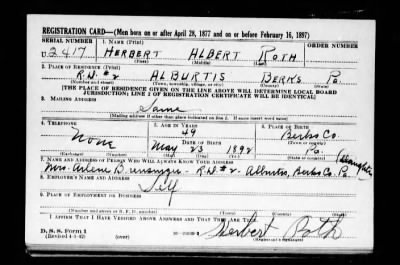 REGISTRATION CARD—(Men born on or after April 28, 1877 and on or before February 16, 1897)
SERIAL NUMBER
1. NAME (Print)
U2417
HERBERT ALBERT ROTH
(First) (Middle) (Last)
2. PLACE OF RESIDENCE (Print)
R.D. #2 ALBURTIS BERKS Pa.
(Number and street) (Town, township, village, or city) (County) (State)
[THE PLACE OF RESIDENCE GIVEN ON THE LINE ABOVE WILL DETERMINE LOCAL BOARD
JURISDICTION; LINE 2 OF REGISTRATION CERTIFICATE WILL BE IDENTICAL]
3. MAILING ADDRESS
Same
[Mailing address if other than place indicated on line 2. If same insert word same]
4. TELEPHONE
5. AGE IN YEARS
6. PLACE OF BIRTH
None
49
Berks Co.
DATE OF BIRTH
(Town or county)
May 23 1892
Pa.
(Exchange) (Number)
(Mo.) (Day) (Yr.)
(State or country)
(daughter)
7. NAME AND ADDRESS OF PERSON WHO WILL ALWAYS KNOW YOUR ADDRESS
Mrs. Arlene R.D. #2. Alburtis, Berks Co. Pa
8. EMPLOYER'S NAME AND ADDRESS
Self
9. PLACE OF EMPLOYMENT OR BUSINESS
(Number and street or R. F. D. number) (Town) (County) (State)
I AFFIRM THAT I HAVE VERIFIED ABOVE ANSWERS AND THAT THEY ARE TRUE.
D. S. S. Form 1
(Revised 4-1-42) (over)
Herbert Roth
(Registrant's signature)